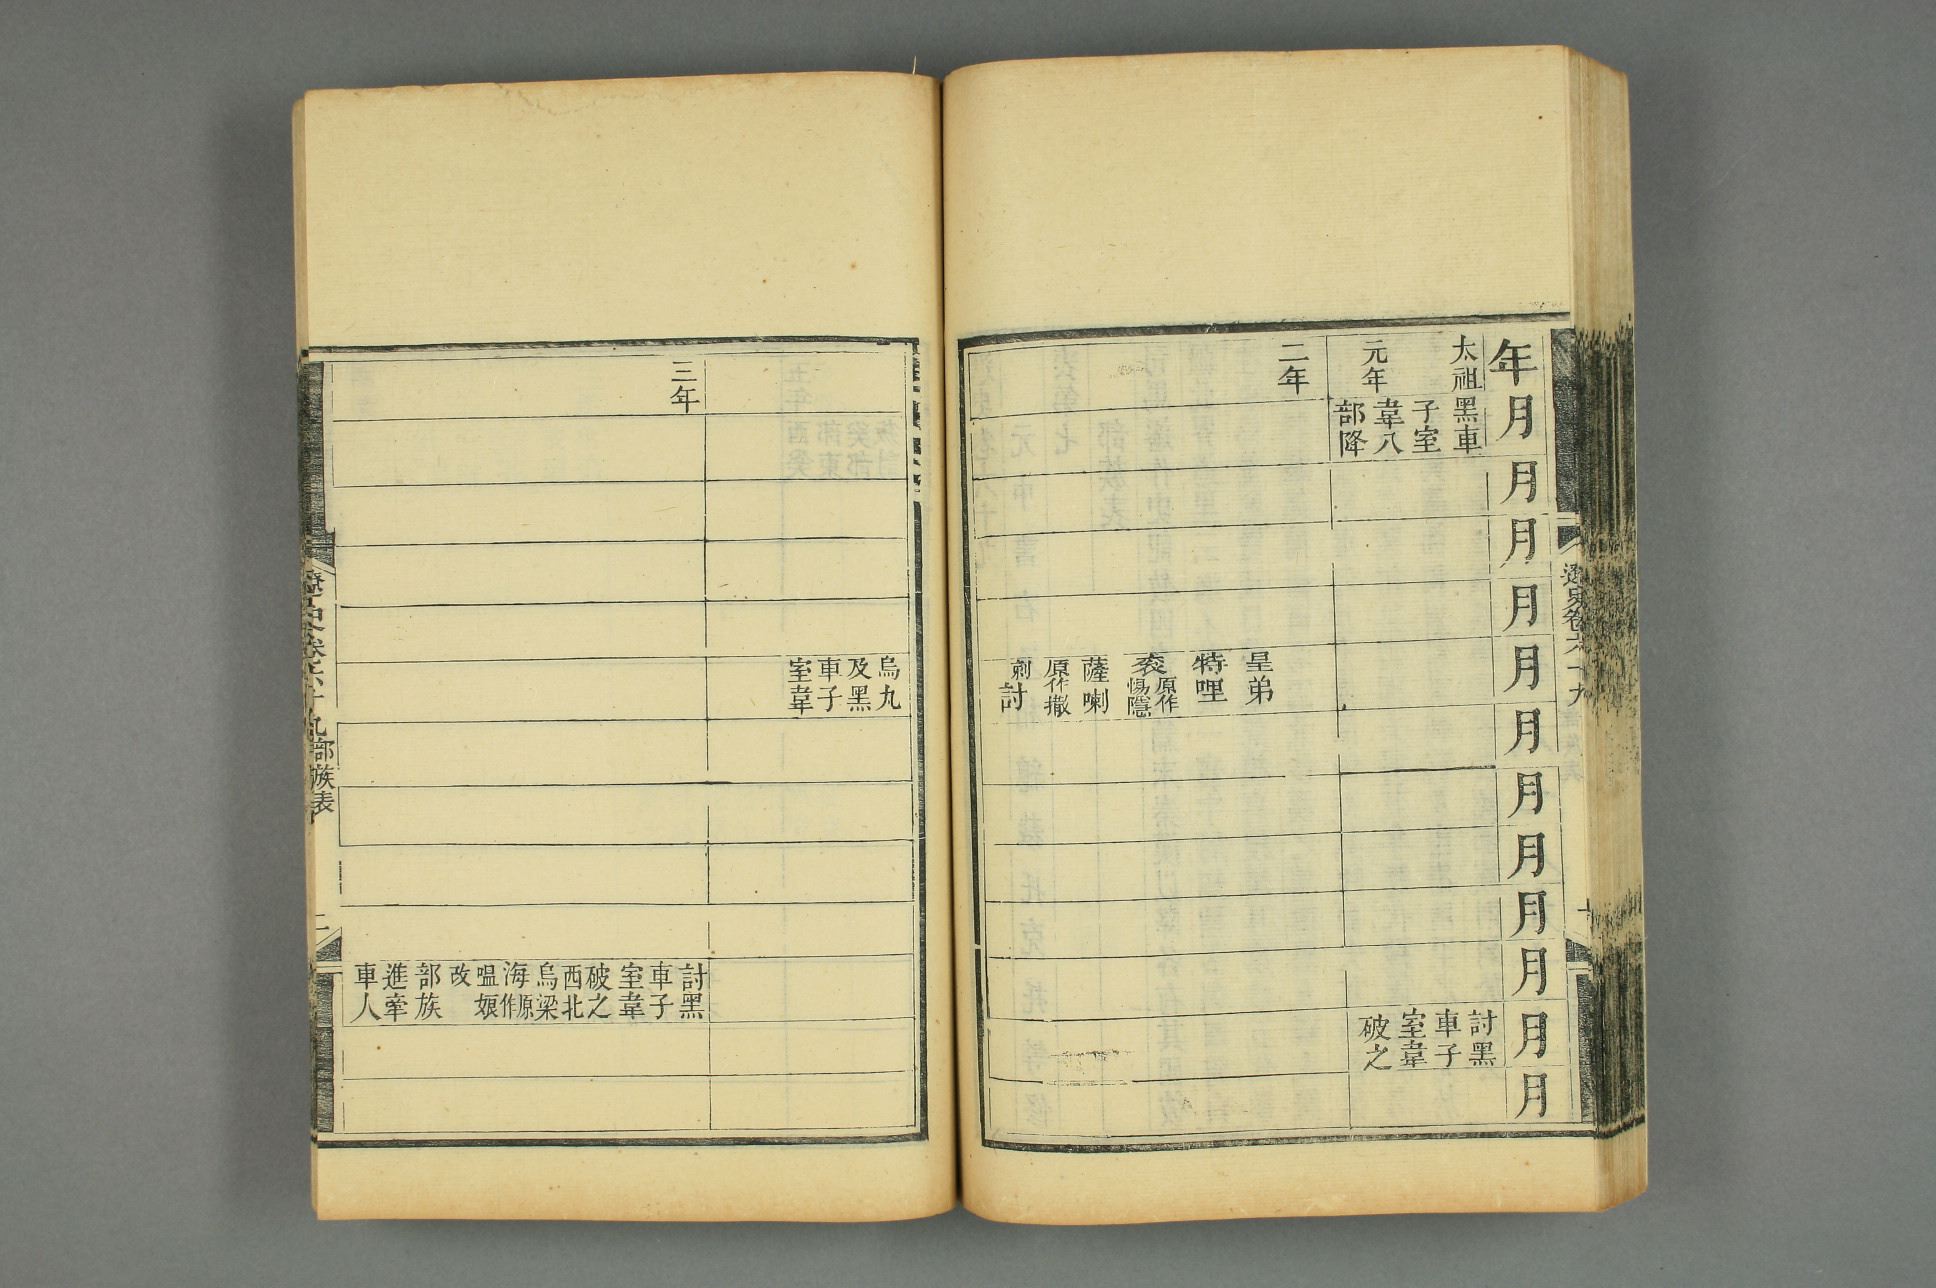 年月月月月月月月月月月月月
太祖
元年
黑車
子室
韋八
部降
討黑
車子
室韋
破之
二年
皇弟
特哩
袞原作
惕隱
薩喇
原作撒
剌討
遼史卷六十九
烏九
及黑
車子
室韋
三年
討黑
車子
室韋
破之
西北
烏梁
海原作
嗢娘
改
部族
進牽
車人
遼史卷六十九
部族表
二